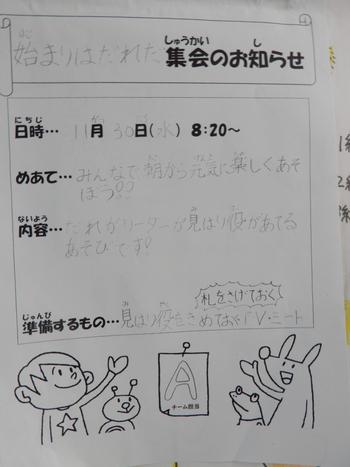 始まりはだれだ 集会のお知らせ
日時… 11月 30日(水) 8:20～
めあて… みんなで朝から元気に楽しくあそ
ぼう!?
内容… だれがリーダーか見はり役があてる
あそびです!
札をさげておく
準備するもの… 見はり役をきめておく
A
チーム担当